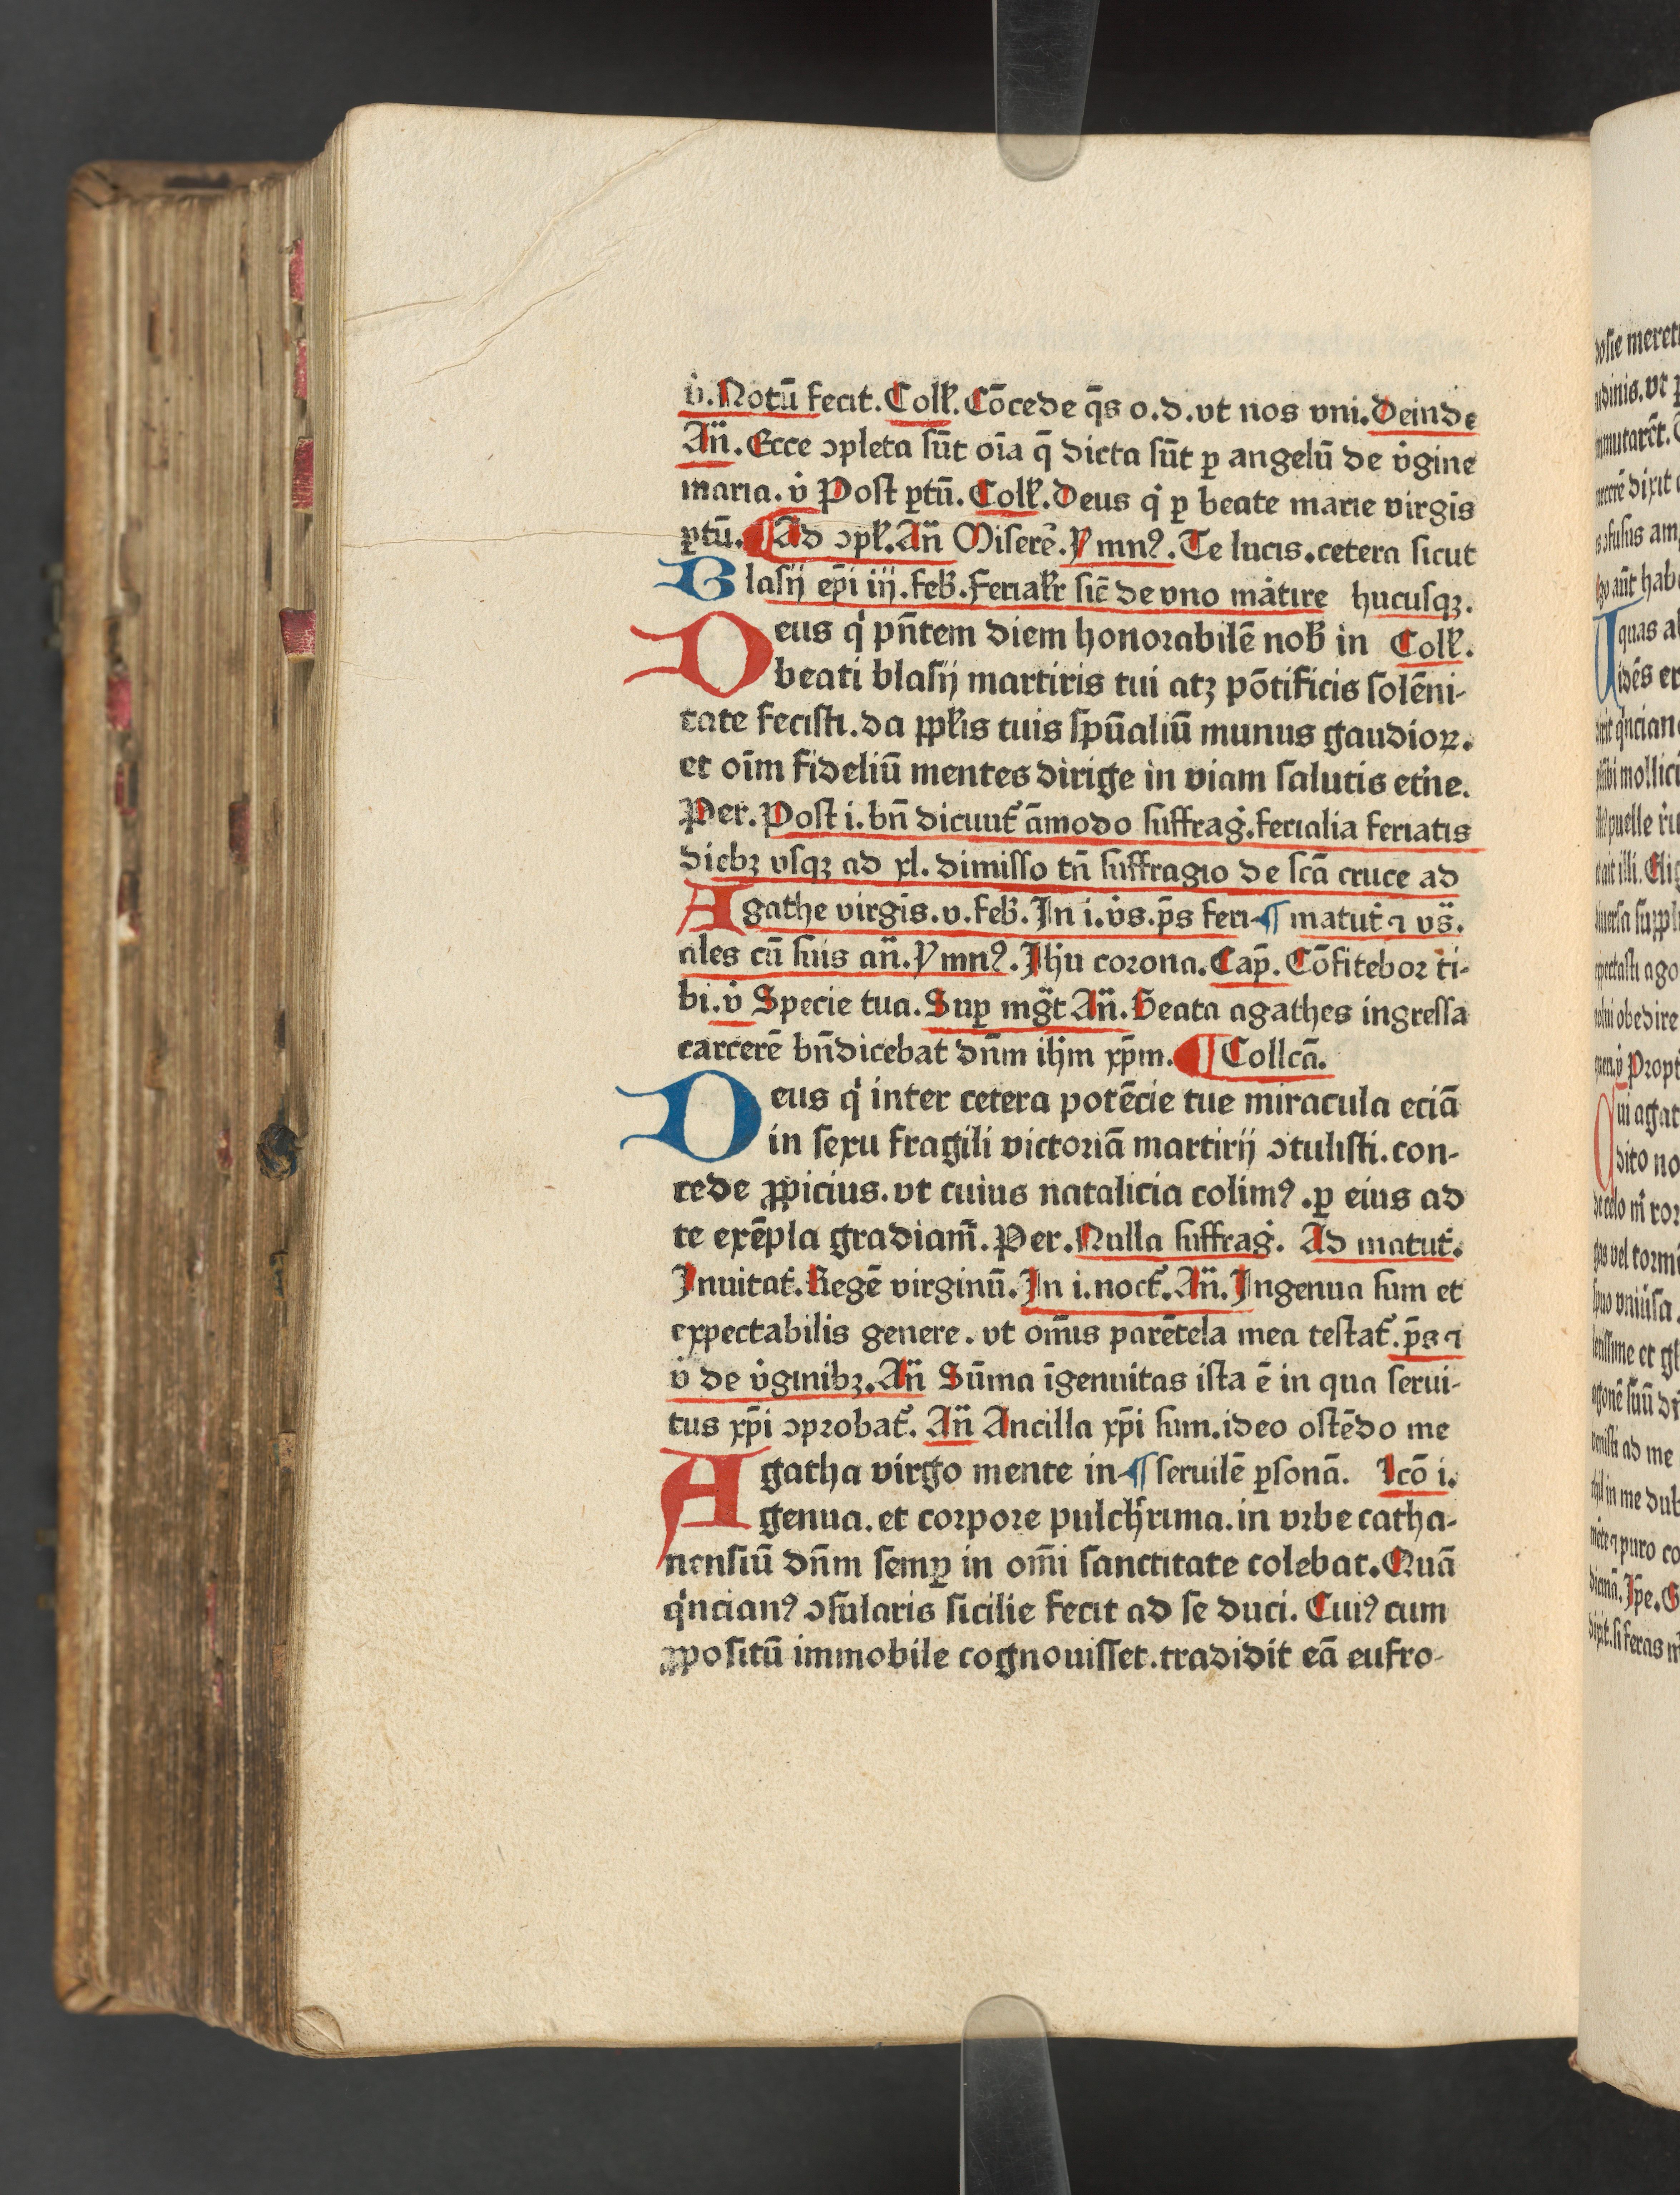 v̓. Notū fecit. Coll̄. Cōcede q̄s o. d. vt nos vni. Deinde
Añ. Ecce ꝯpleta sūt oīa q̄ dicta sūt ꝑ angelū de v̓gine
maria. v̓ Post ꝑtū. Coll̄. Deus q̇ ꝑ beate marie virgīs
ꝑtū. ¶ Ad ꝯpl̄. Añ Miserē. Ymnꝰ. Te lucis. cetera sicut
Blasij ep̄i iij. feb̄. Ferialr̄ sic̄ de vno mȧtire hucusqꝫ.
Deus q̇ pn̄tem diem honorabilē nob̄ in Coll̄.
beati blasij martiris tui atqꝫ pōtificis solēni-
tate fecisti. da ppl̄is tuis spūaliū munus gaudioꝝ.
et oīm fideliū mentes dirige in viam salutis et̓ne.
Per. Post i. bn̄ dicunt᷑ āmodo suffrag̓. ferialia feriatis
diebꝫ vsqꝫ ad xl. dimisso tn̄ suffragio de scā cruce ad
Agathe virgīs. v. feb̄. In i. v̓s. p̄s feri- ¶ matut̓ ⁊ vs̄.
ales cū suis an̄. Ymnꝰ. Jhu corona. Cap̄. Cōfitebor ti-
bi. v̓ Specie tua. Suꝑ mḡt Añ. Beata agathes ingressa
carcerē bn̄dicebat dn̄m ihm xp̄m. ¶ Collcā.
Deus q̇ inter cetera potēcie tue miracula eciā
in sexu fragili victoriā martirij ꝯtulisti. con-
cede ꝓpicius. vt cuius natalicia colimꝰ. ꝑ eius ad
te exēpla gradiam̄. Per. Nulla suffrag̓. Ad matut̓.
Inuitat̓. Regē virginū. In i. noct᷑. Añ. Ingenua sum et
expectabilis genere. vt om̄is parētela mea testat᷑. p̄s ⁊
v̓ de v̓ginibꝫ. Añ Sūma īgenuitas ista ē in qua serui-
tus xp̄i ꝯprobat᷑. Añ Ancilla xp̄i sum. ideo ostēdo me
Agatha virgo mente in- ¶ seruilē ꝑsonā. Lcō i.
genua. et corpore pulch̓rima. in vrbe catha-
nensiū dn̄m semꝑ in om̄i sanctitate colebat. Quā
q̇ncianꝰ ꝯsularis sicilie fecit ad se duci. Cuiꝰ cum
ꝓpositū immobile cognouisset. tradidit eā eufro-